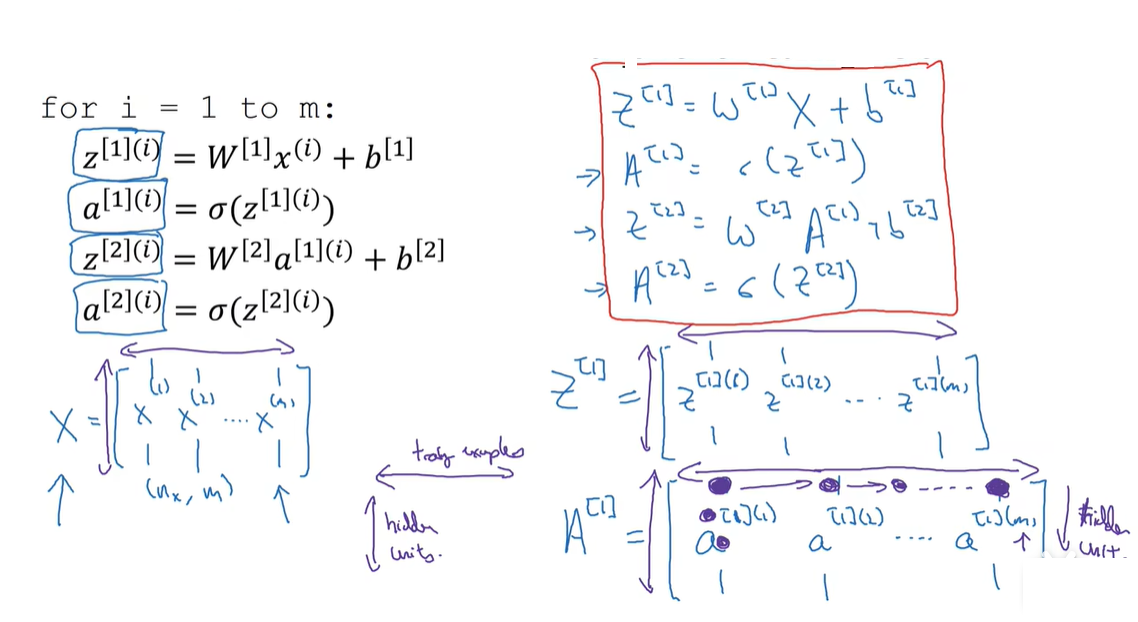 for i = 1 to m:
z[1](i) = W[1]x(i) + b[1]
a[1](i) = σ(z[1](i))
z[2](i) = W[2]a[1](i) + b[2]
a[2](i) = σ(z[2](i))
X = [ x(1) x(2) .... x(m) ]
(nx, m)
hidden
units.
Z[1] = W[1] X + b[1]
→ A[1] = σ(Z[1])
→ Z[2] = W[2] A[1] + b[2]
→ A[2] = σ(Z[2])
Z[1] = [ z[1](1) z[1](2) ... z[1](m) ]
A[1] = [ a[1](1) a[1](2) .... a[1](m) ]
hidden
unit